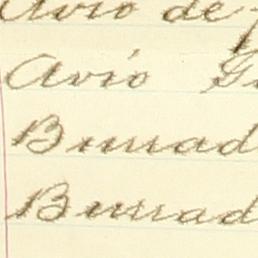 Avio de
Avio G
Burrad
Burrad